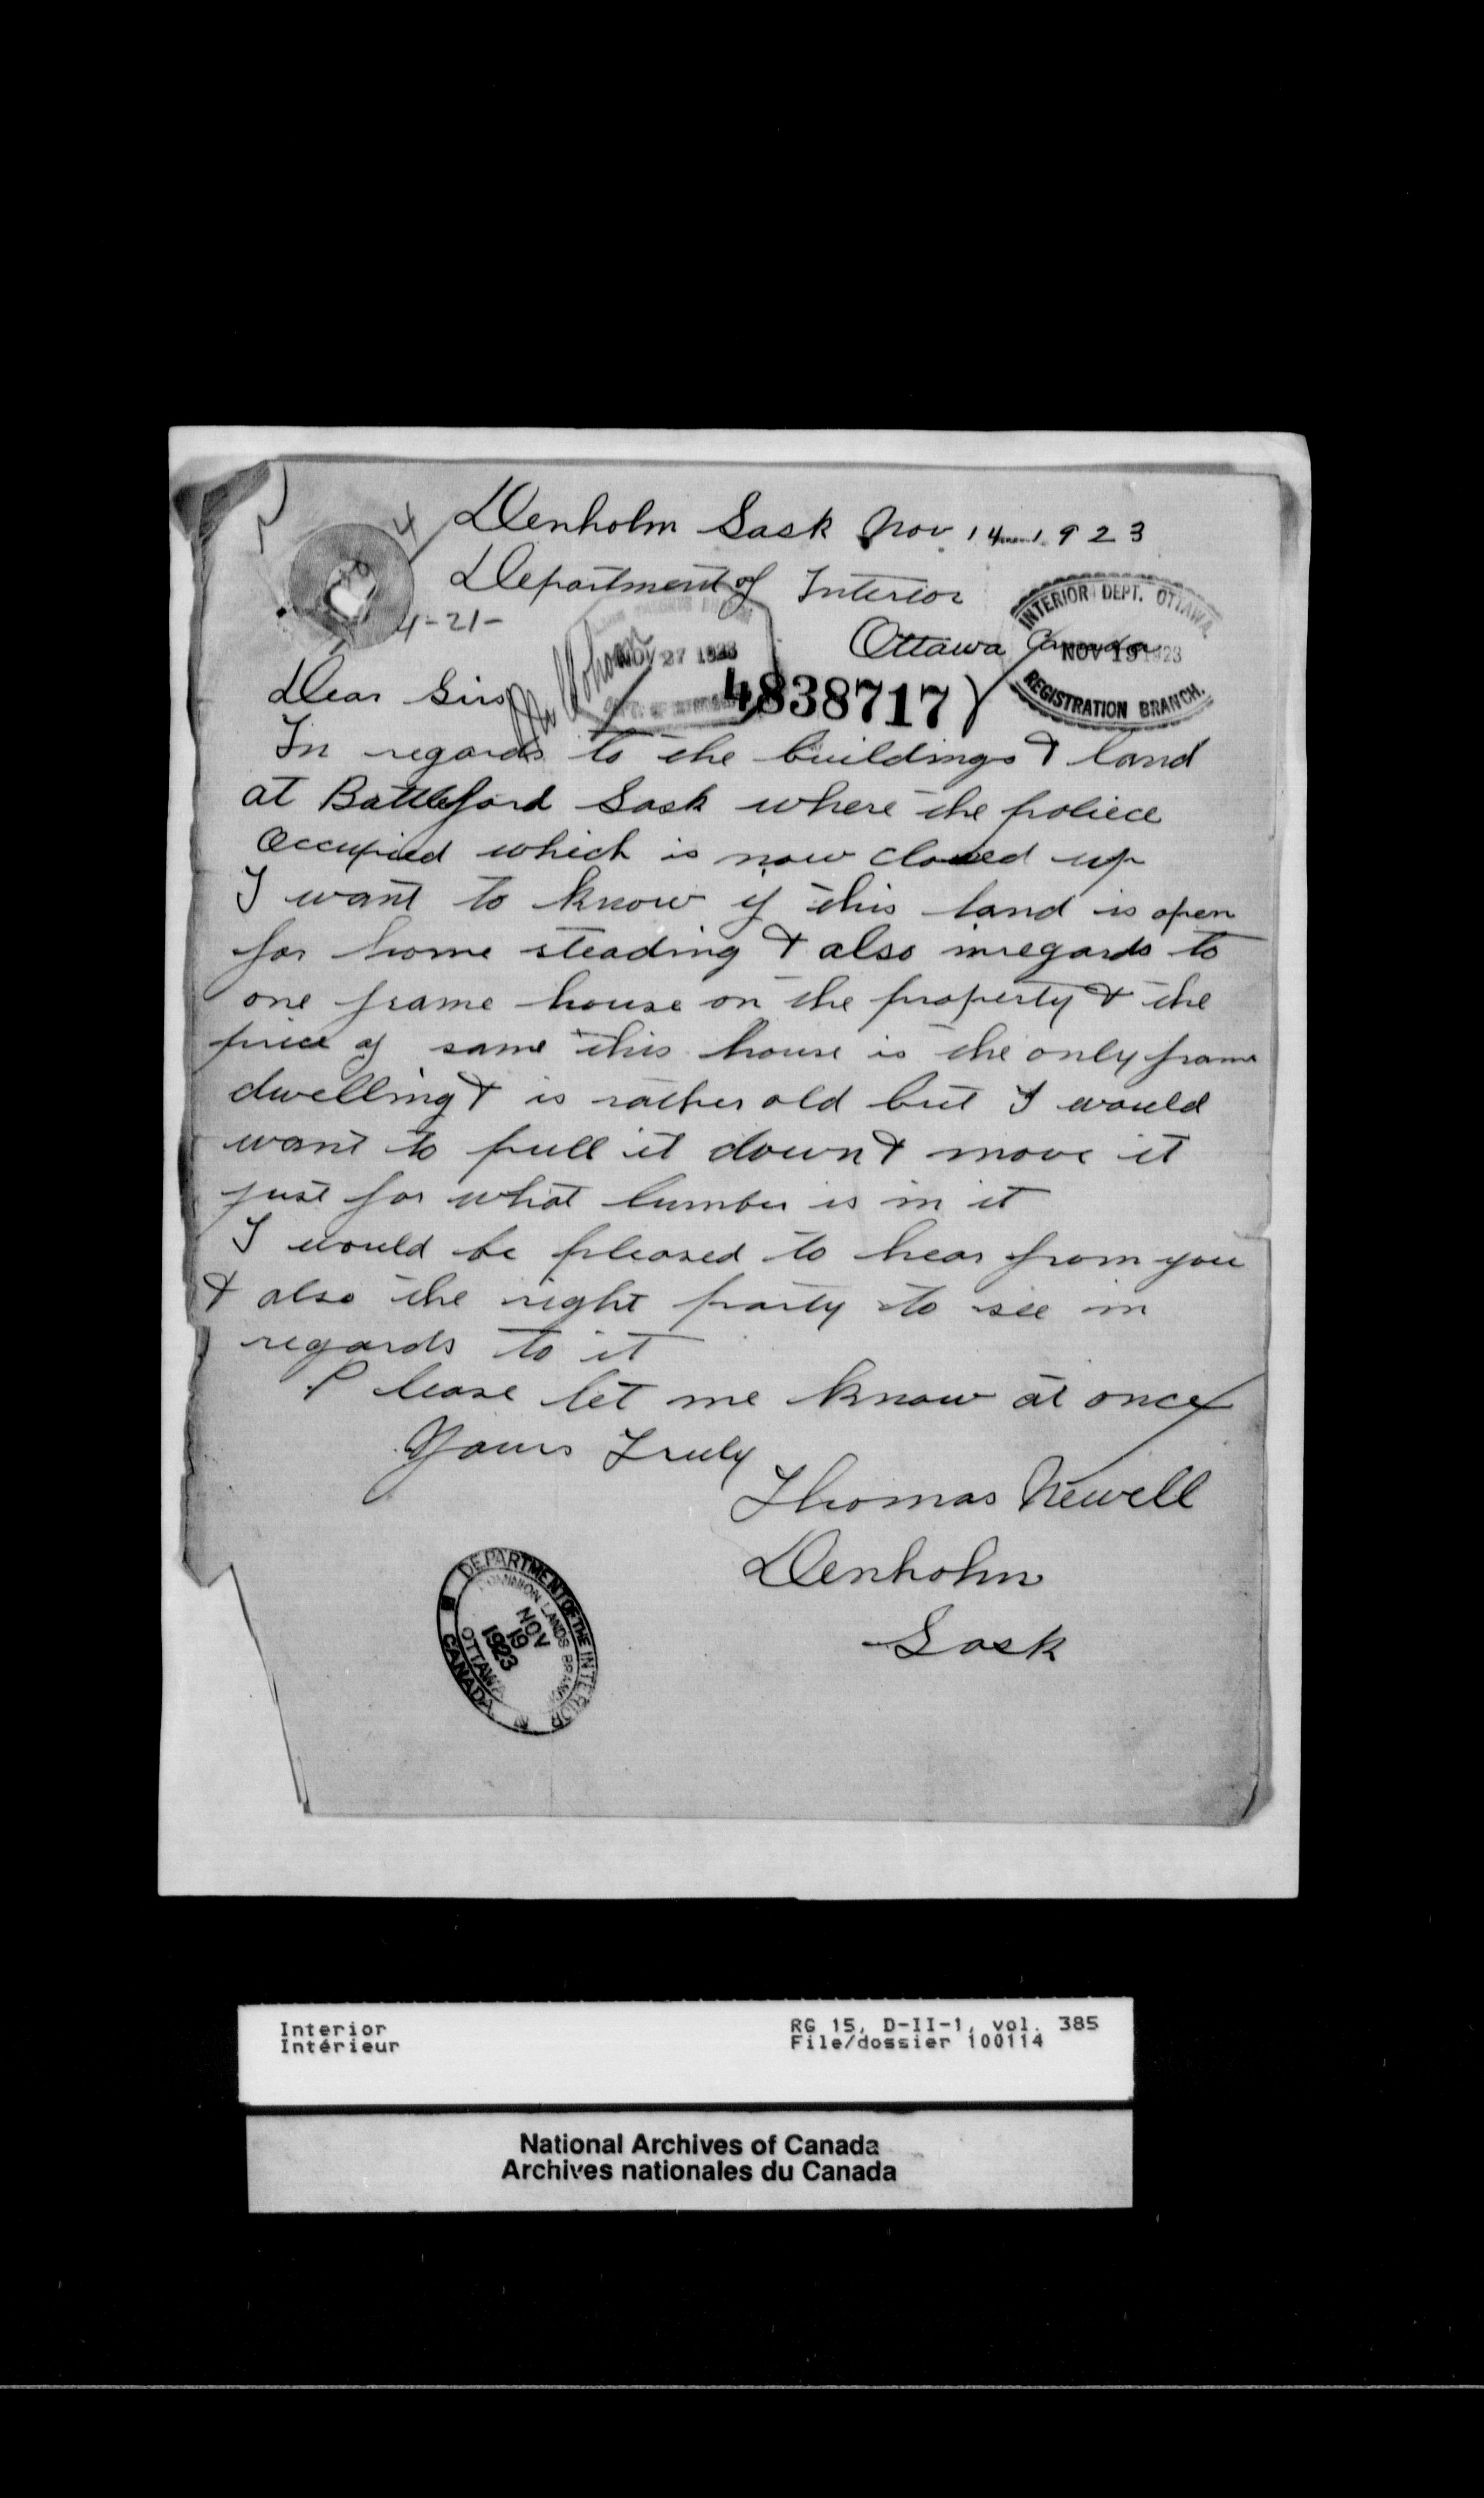 4
Denholm Sask Nov 14 1923
Department of Interior
4-21-
INTERIOR DEPT. OTTAWA.
NOV 19 1923
REGISTRATION BRANCH.
Ottawa Canada
NOV 27 1923
4838717
Dear Sirs
In regards to the buildings & land
at Battleford Sask where the poliece
Occupied which is now closed up
I want to know if this land is open
for home steading & also inregards to
one frame house on the property & the
price of same this house is the only frame
dwelling & is rather old but I would
want to pull it down & move it
just for what lumber is in it
I would be pleased to hear from you
& also the right party to see in
regards to it
Please let me know at once
Yours Truly
Thomas Newell
Denholm
Sask
DEPARTMENT OF THE INTERIOR
DOMINION LANDS BRANCH
NOV
19
1923
OTTAWA
CANADA
Interior
Intérieur
RG 15, D-II-1, vol. 385
File/dossier 100114
National Archives of Canada
Archives nationales du Canada